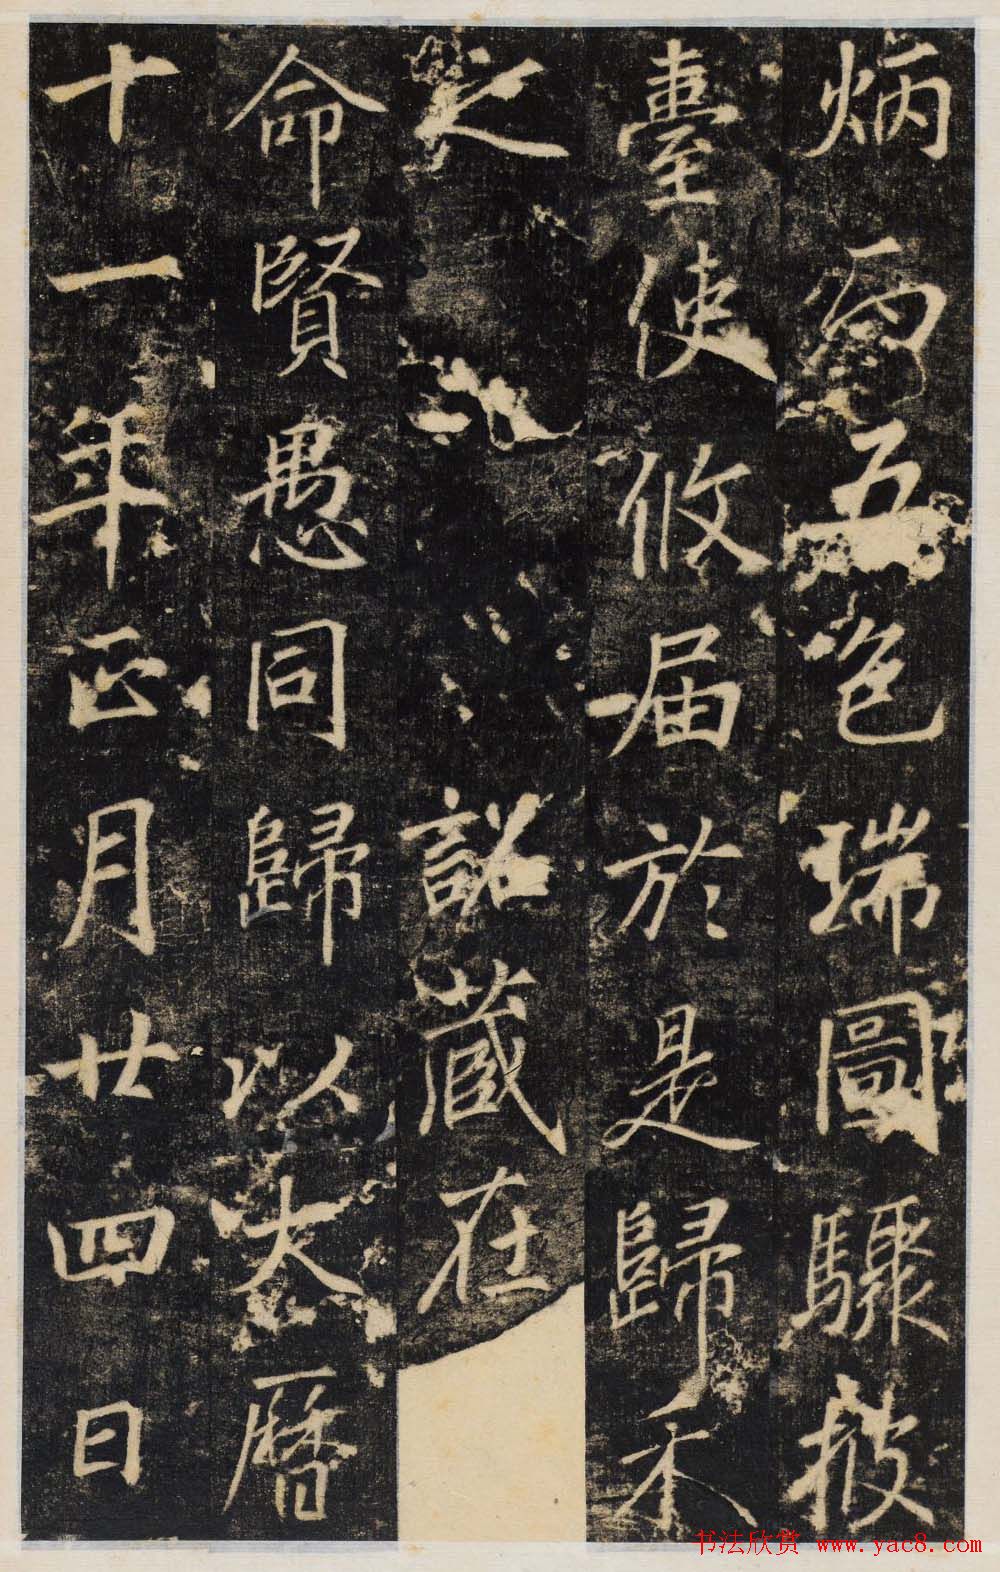 炳而五色瑞圖驟披
臺使攸届於是歸禾
之 詔藏在
命賢愚同歸以大曆
十一年正月廿四日
书法欣赏 www.yac8.com